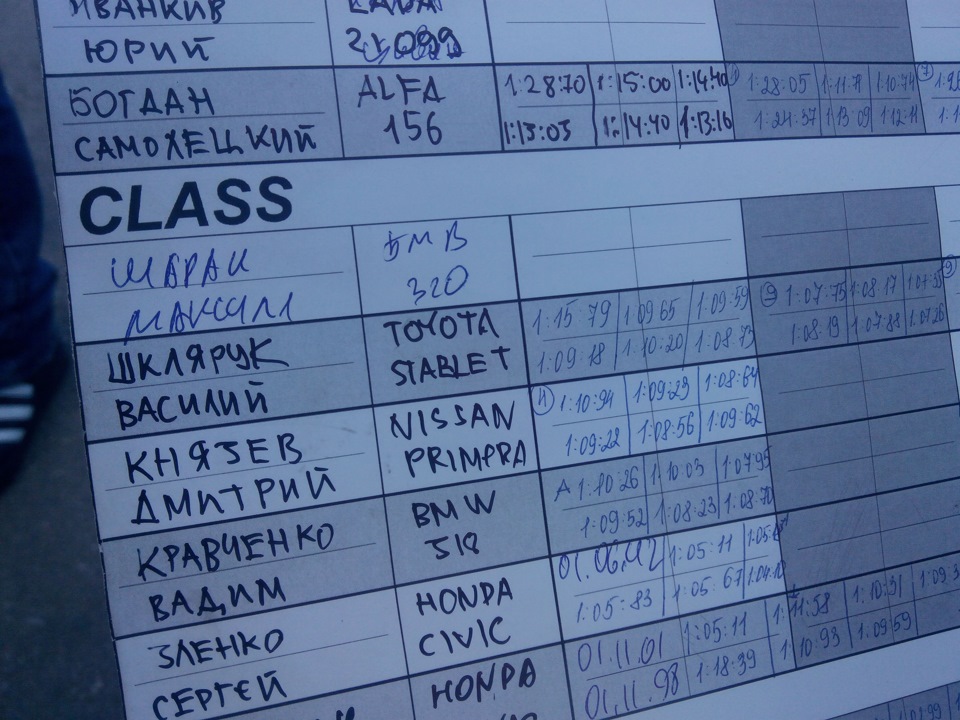 ИВАНКИВ LADA
ЮРИЙ 21099
БОГДАН ALFA 1:28:70 1:15:00 1:14:40 1:28:05 1:11:71 1:10:74
САМОХЕЦКИЙ 156 1:13:03 1:14:40 1:13:16 1:24:37 1:13:09 1:12:11
CLASS
ШАРАН БМВ
МАКСИМ 320
ШКЛЯРУК TOYOTA 1:15:79 1:09:65 1:09:59 1:07:75 1:08:17
ВАСИЛИЙ STARLET 1:09:18 1:10:20 1:08:73 1:08:19 1:07:88 1:07:26
КНЯЗЕВ NISSAN 1:10:94 1:09:23 1:08:64
ДМИТРИЙ PRIMERA 1:09:22 1:08:56 1:09:62
КРАВЧЕНКО BMW 1:10:26 1:10:03 1:07:95
ВАДИМ 318 1:09:52 1:08:23 1:08:70
ЗЛЕНКО HONDA 01.06.42 1:05:11
СЕРГЕЙ CIVIC 1:05:83 1:05:67
HONDA 01.11.01 1:05:11 1:11:58 1:10:31
01.11.98 1:18:39 1:10:93 1:09:59